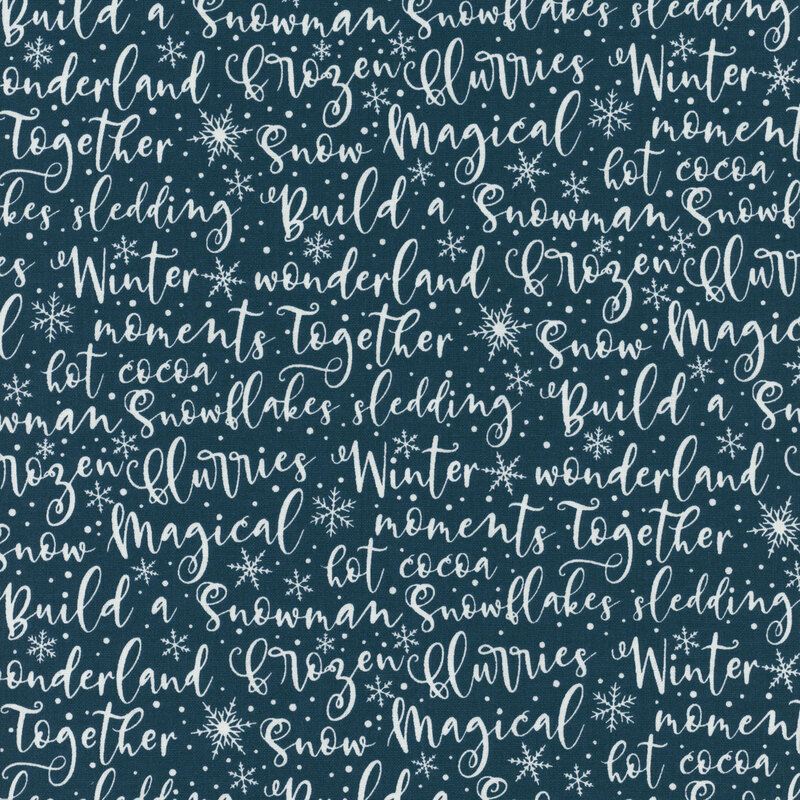 Build a Snowman Snowflakes sledding
wonderland Frozen flurries Winter
Together Snow Magical moments
hot cocoa
kes sledding Build a Snowman Snowfl
es Winter wonderland Frozen flurri
l moments Together Snow Magica
hot cocoa
owman Snowflakes sledding Build a Sn
rozen flurries Winter wonderland
Snow Magical moments Together
hot cocoa
Build a Snowman Snowflakes sledding
wonderland Frozen flurries Winter
Together Snow Magical moment
hot cocoa